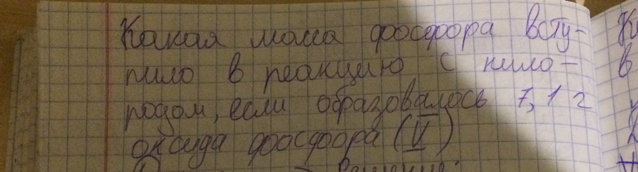 Какая масса фосфора всту-
пило в реакцию с кисло-
родом, если образовалось 7,1 г
оксида фосфора (V)
Решение: